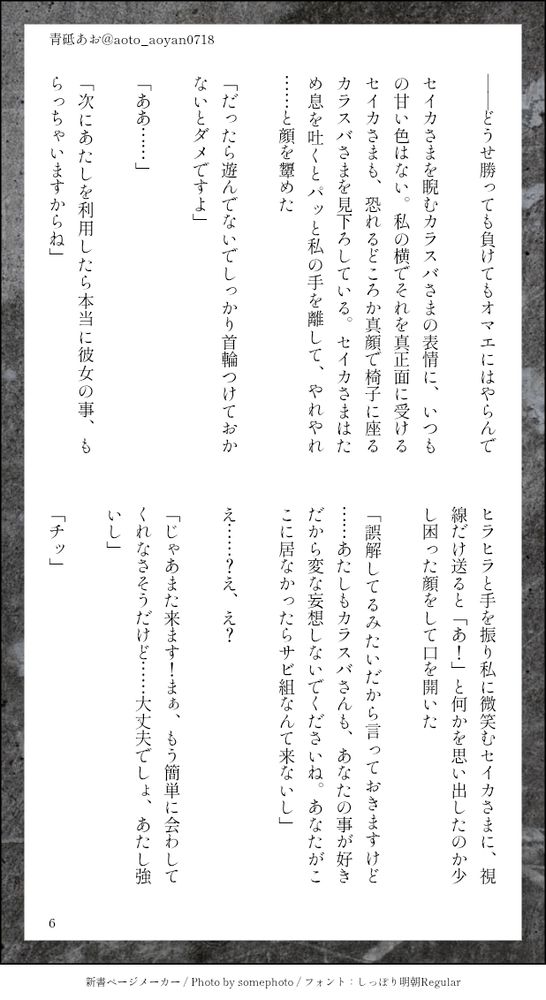 青砥あお@aoto_aoyan0718
――どうせ勝っても負けてもオマエにはやらんで
セイカさまを睨むカラスバさまの表情に、いつも
の甘い色はない。私の横でそれを真正面に受ける
セイカさまも、恐れるどころか真顔で椅子に座る
カラスバさまを見下ろしている。セイカさまはた
め息を吐くとパッと私の手を離して、やれやれ
……と顔を顰めた
「だったら遊んでないでしっかり首輪つけておか
ないとダメですよ」
「ああ……」
「次にあたしを利用したら本当に彼女の事、も
らっちゃいますからね」
ヒラヒラと手を振り私に微笑むセイカさまに、視
線だけ送ると「あ！」と何かを思い出したのか少
し困った顔をして口を開いた
「誤解してるみたいだから言っておきますけど
……あたしもカラスバさんも、あなたの事が好き
だから変な妄想しないでくださいね。あなたがこ
こに居なかったらサビ組なんて来ないし」
え……？え、え？
「じゃあまた来ます！まぁ、もう簡単に会わして
くれなさそうだけど……大丈夫でしょ、あたし強
いし」
「チッ」
6
新書ページメーカー / Photo by somephoto / フォント：しっぽり明朝Regular